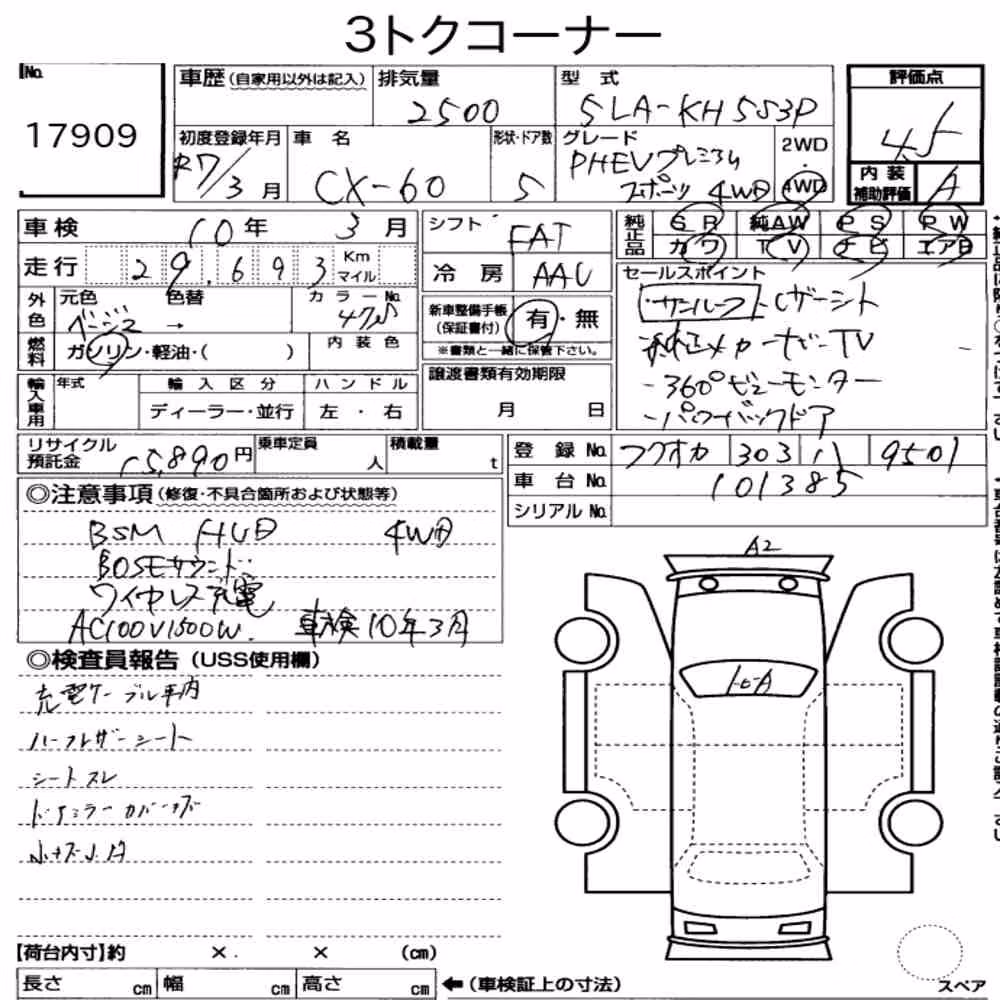 3トクコーナー
No.
17909
車歴(自家用以外は記入)
排気量
2500
型式
5LA-KH5S3P
評価点
4.5
初度登録年月
R7/3月
車名
CX-60
形状・ドア数
5
グレード
PHEVプレミアム
スポーツ 4WD
2WD
・
4WD
内装
補助評価
A
車検 10年 3月
シフト FAT
純正品
SR 純AW PS PW
カワ TV ナビ エアB
走行 29,693 Km マイル
冷房 AAC
セールスポイント
・サンルーフ レザーシート
・純正メーカーナビTV
・360°ビューモニター
・パワーバックドア
外色
元色 ベージュ →
色替
カラーNo.
新車整備手帳
(保証書付)
有・無
※書類と一緒に保管下さい。
燃料
ガソリン・軽油・( )
内装色
譲渡書類有効期限
月 日
輸入車用
年式
輸入区分
ハンドル
ディーラー・並行
左・右
リサイクル
預託金 15,890円
乗車定員
人
積載量
t
登録No. フクオカ 303 9501
車台No. 101385
シリアルNo.
◎注意事項(修復・不具合箇所および状態等)
BSM HUD 4WD
BOSEサウンド
ワイヤレス充電
AC100V1500W. 車検10年3月
◎検査員報告(USS使用欄)
充電ケーブル車内
ハーフレザーシート
シートスレ
ドアミラーカバーキズ
小キズ小凹
A2
【荷台内寸】約 × . × (cm)
長さ cm 幅 cm 高さ cm ←(車検証上の寸法)
スペア